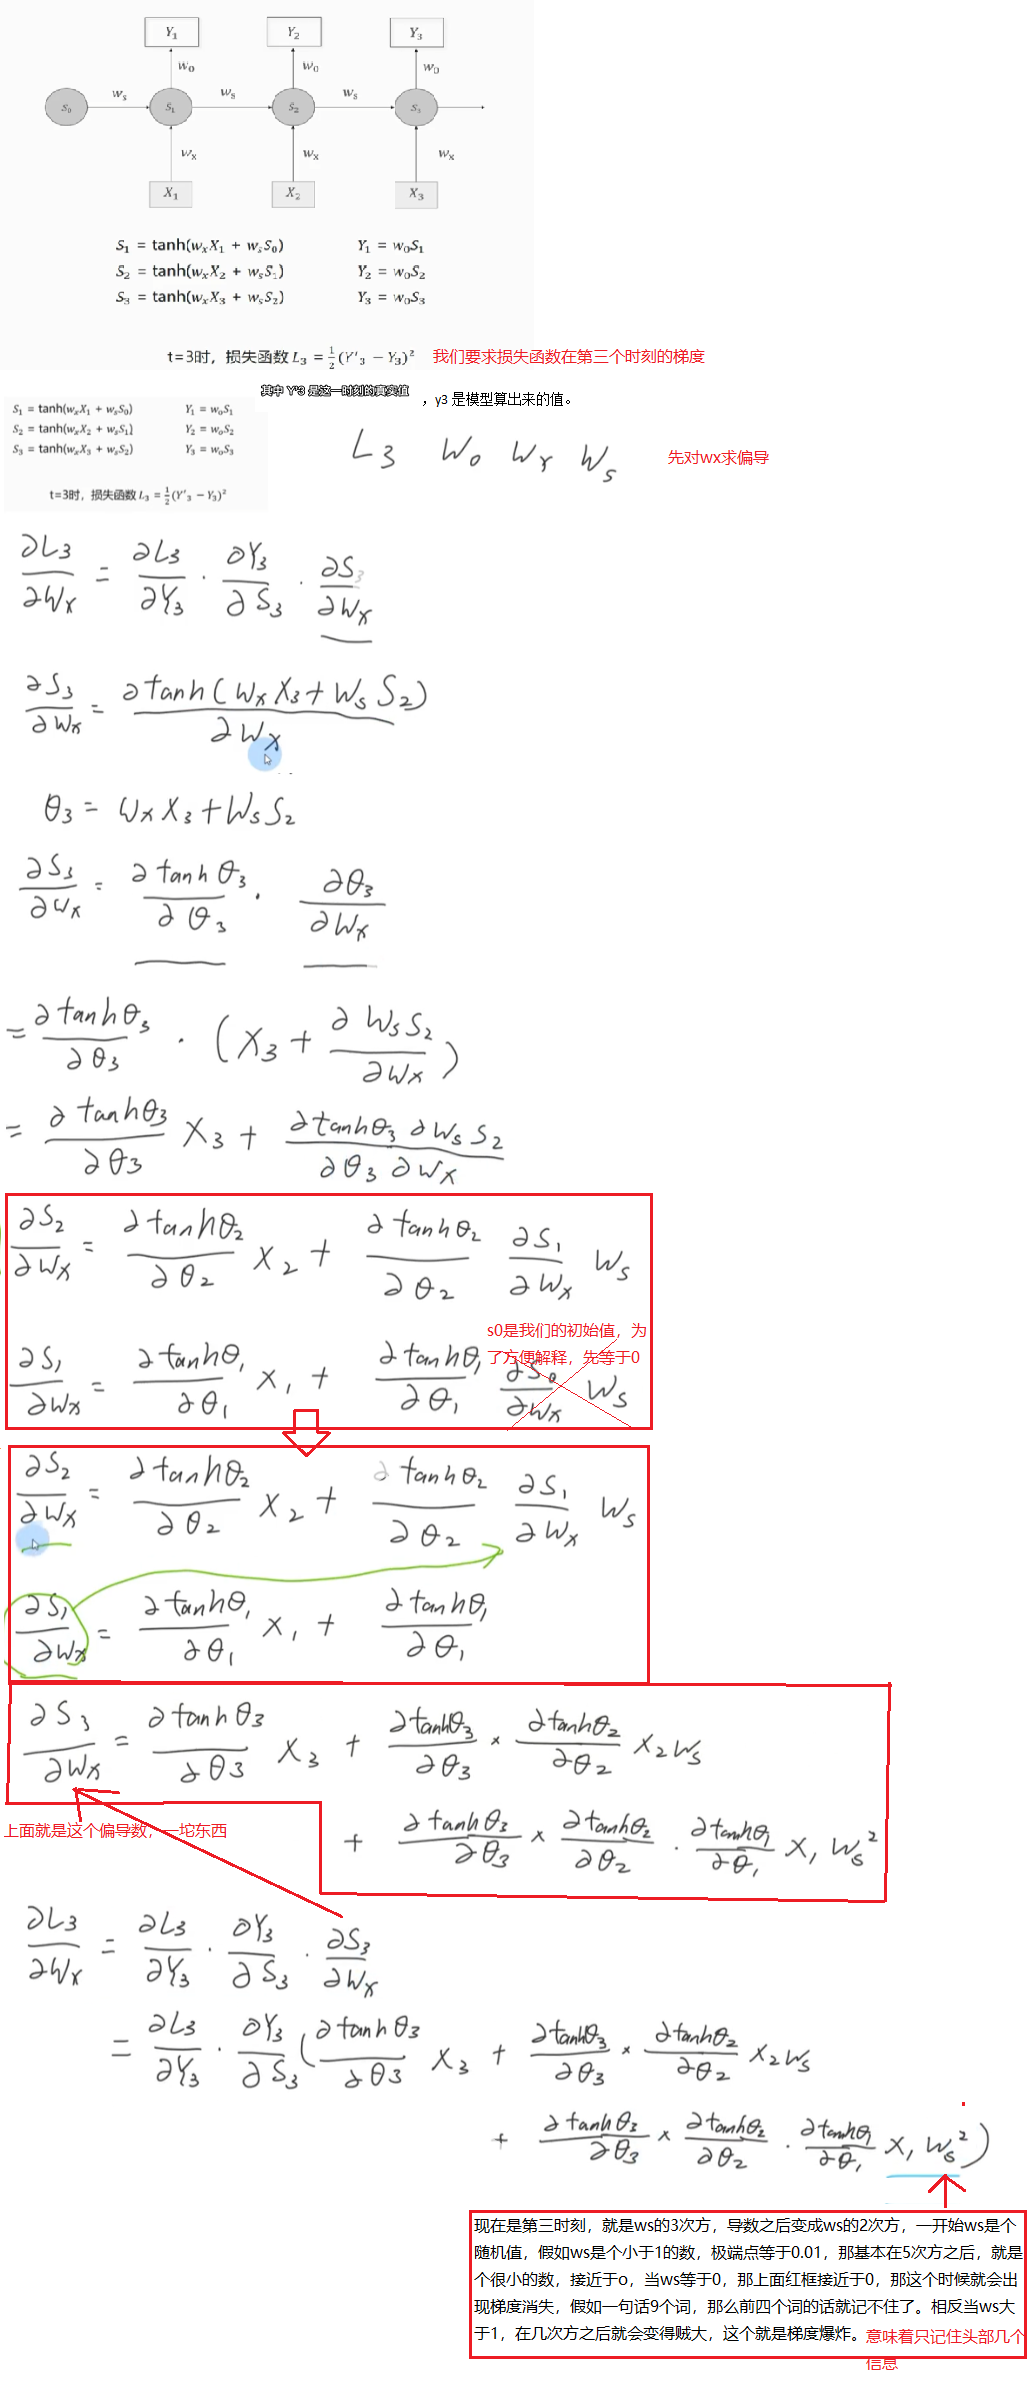 Y₁ Y₂ Y₃
w₀ w₀ w₀
S₀ wₛ S₁ wₛ S₂ wₛ S₃
wₓ wₓ wₓ
X₁ X₂ X₃
S₁ = tanh(wₓX₁ + wₛS₀) Y₁ = w₀S₁
S₂ = tanh(wₓX₂ + wₛS₁) Y₂ = w₀S₂
S₃ = tanh(wₓX₃ + wₛS₂) Y₃ = w₀S₃
t=3时，损失函数 L₃ = 1/2 (Y'₃ − Y₃)² 我们要求损失函数在第三个时刻的梯度
其中 Y'3 是这一时刻的真实值 ，y3 是模型算出来的值。
S₁ = tanh(wₓX₁ + wₛS₀) Y₁ = w₀S₁
S₂ = tanh(wₓX₂ + wₛS₁) Y₂ = w₀S₂
S₃ = tanh(wₓX₃ + wₛS₂) Y₃ = w₀S₃
L₃ W₀ Wₓ Wₛ 先对wx求偏导
t=3时，损失函数 L₃ = 1/2 (Y'₃ − Y₃)²
∂L₃/∂Wₓ = ∂L₃/∂Y₃ · ∂Y₃/∂S₃ · ∂S₃/∂Wₓ
∂S₃/∂Wₓ = ∂tanh(WₓX₃+WₛS₂)/∂Wₓ
θ₃ = WₓX₃+WₛS₂
∂S₃/∂Wₓ = ∂tanhθ₃/∂θ₃ · ∂θ₃/∂Wₓ
= ∂tanhθ₃/∂θ₃ · (X₃ + ∂WₛS₂/∂Wₓ)
= ∂tanhθ₃/∂θ₃ X₃ + ∂tanhθ₃ ∂WₛS₂/∂θ₃ ∂Wₓ
∂S₂/∂Wₓ = ∂tanhθ₂/∂θ₂ X₂ + ∂tanhθ₂/∂θ₂ ∂S₁/∂Wₓ Wₛ
s0是我们的初始值，为
了方便解释，先等于0
∂S₁/∂Wₓ = ∂tanhθ₁/∂θ₁ X₁ + ∂tanhθ₁/∂θ₁ ∂S₀/∂Wₓ Wₛ
∂S₂/∂Wₓ = ∂tanhθ₂/∂θ₂ X₂ + ∂tanhθ₂/∂θ₂ ∂S₁/∂Wₓ Wₛ
∂S₁/∂Wₓ = ∂tanhθ₁/∂θ₁ X₁ + ∂tanhθ₁/∂θ₁
∂S₃/∂Wₓ = ∂tanhθ₃/∂θ₃ X₃ + ∂tanhθ₃/∂θ₃ × ∂tanhθ₂/∂θ₂ X₂Wₛ
上面就是这个偏导数，一坨东西
+ ∂tanhθ₃/∂θ₃ × ∂tanhθ₂/∂θ₂ · ∂tanhθ₁/∂θ₁ X₁Wₛ²
∂L₃/∂Wₓ = ∂L₃/∂Y₃ · ∂Y₃/∂S₃ · ∂S₃/∂Wₓ
= ∂L₃/∂Y₃ · ∂Y₃/∂S₃ (∂tanhθ₃/∂θ₃ X₃ + ∂tanhθ₃/∂θ₃ × ∂tanhθ₂/∂θ₂ X₂Wₛ
+ ∂tanhθ₃/∂θ₃ × ∂tanhθ₂/∂θ₂ · ∂tanhθ₁/∂θ₁ X₁Wₛ²)
现在是第三时刻，就是ws的3次方，导数之后变成ws的2次方，一开始ws是个
随机值，假如ws是个小于1的数，极端点等于0.01，那基本在5次方之后，就是
个很小的数，接近于o，当ws等于0，那上面红框接近于0，那这个时候就会出
现梯度消失，假如一句话9个词，那么前四个词的话就记不住了。相反当ws大
于1，在几次方之后就会变得贼大，这个就是梯度爆炸。意味着只记住头部几个
信息